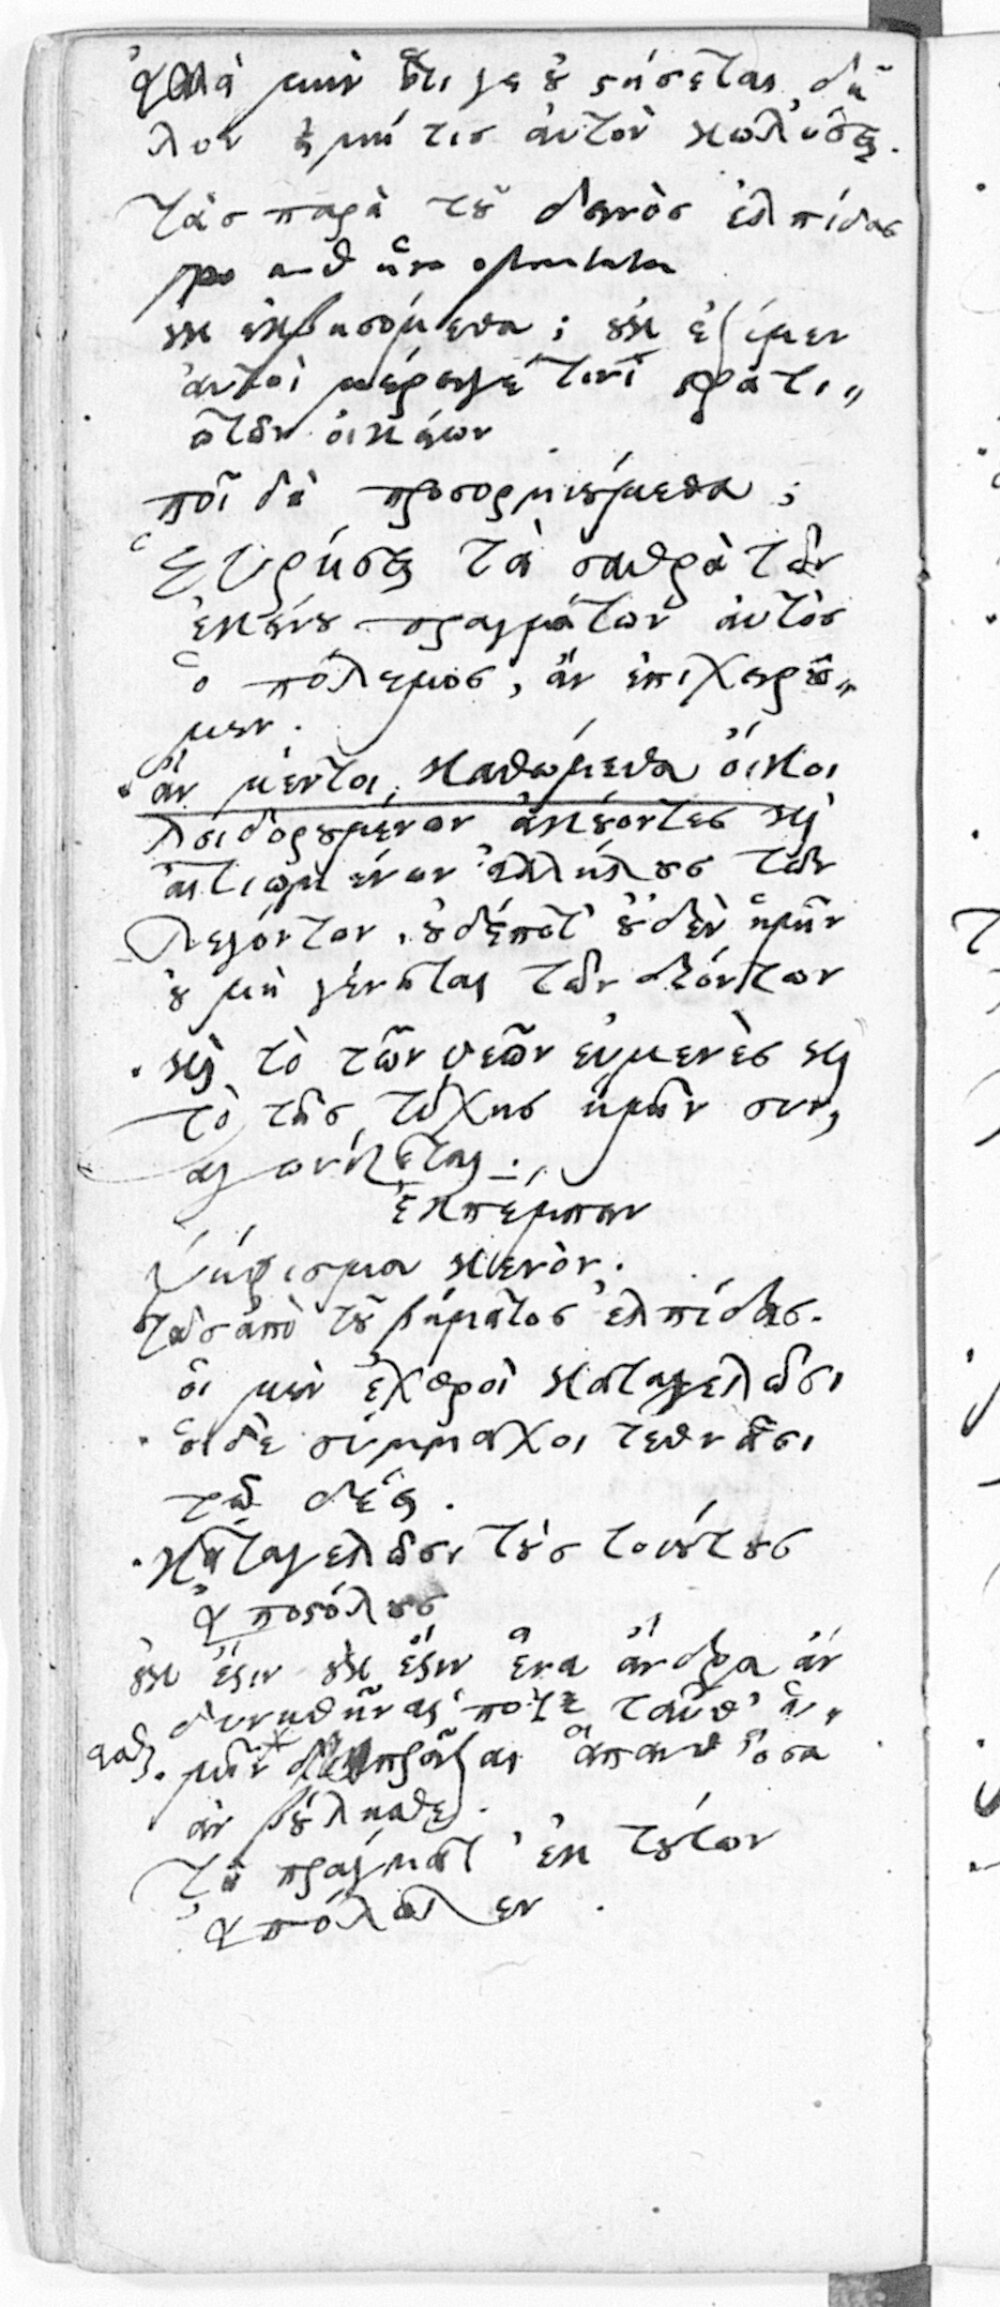 ἀλλὰ μὴν ὅτι γε οὐ στήσεται δῆ
λον εἰ μή τις αὐτὸν κωλύσει.
τὰς παρὰ τοῦ δεῖνος ἐλπίδας
οὐκ ἐμβησόμεθα; οὐκ ἔξιμεν
αὐτοὶ μέρει γέ τινι στρατι〃
ωτῶν οἰκείων
ποῖ δὴ προσορμιούμεθα;
εὑρήσει τὰ σαθρὰ τῶν
ἐκείνου πραγμάτων αὐτὸς
ὁ πόλεμος, ἂν ἐπιχειρῶ〃
μεν.
ἂν μέντοι καθώμεθα οἴκοι
λοιδορουμένων ἀκούοντες καὶ
αἰτιωμένων ἀλλήλους τῶν
λεγόντων, οὐδέποτ' οὐδὲν ἡμῖν
οὐ μὴ γένηται τῶν δεόντων
καὶ τὸ τῶν θεῶν εὐμενὲς καὶ
τὸ τῆς τύχης ἡμῖν συν,
αγωνίζεται.
ἐκπέμπειν
ψήφισμα κενὸν.
τὰς ἀπὸ τοῦ βήματος ἐλπίδας.
οἱ μὲν ἐχθροὶ καταγελῶσι
οἱ δὲ σύμμαχοι τεθνᾶσι
τῷ δέει.
καταγελῶσι τοὺς τοιούτους
ἀποστόλους
οὐκ ἔστιν οὐκ ἔστιν ἕνα ἄνδρα ἂν
δυνηθῆναι ποτε ταῦθ' ὑ〃
μῖν πρᾶξαι ἅπανθ' ὅσα
ἂν βούλησθε.
τὰ πράγματ' ἐκ τούτων
ἀπόλωλεν.